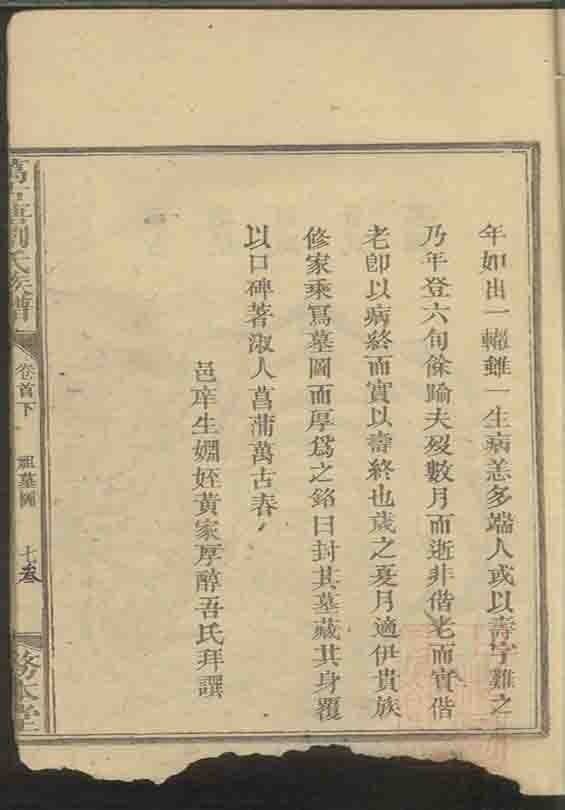 年如出一轍雖一生病恙多端人或以壽字難之
乃年登六旬餘踰夫歿數月而逝非偕老而實偕
老卽以病終而實以壽終也歲之憂月適伊貴族
修家乘寫墓圖而厚爲之銘曰封其墓藏其身覆
以口碑著淑人菖蒲萬古春
邑庠生姻姪黃家厚醇吾氏拜譔
劉氏族譜
卷首下
祖墓圖
七
務本堂